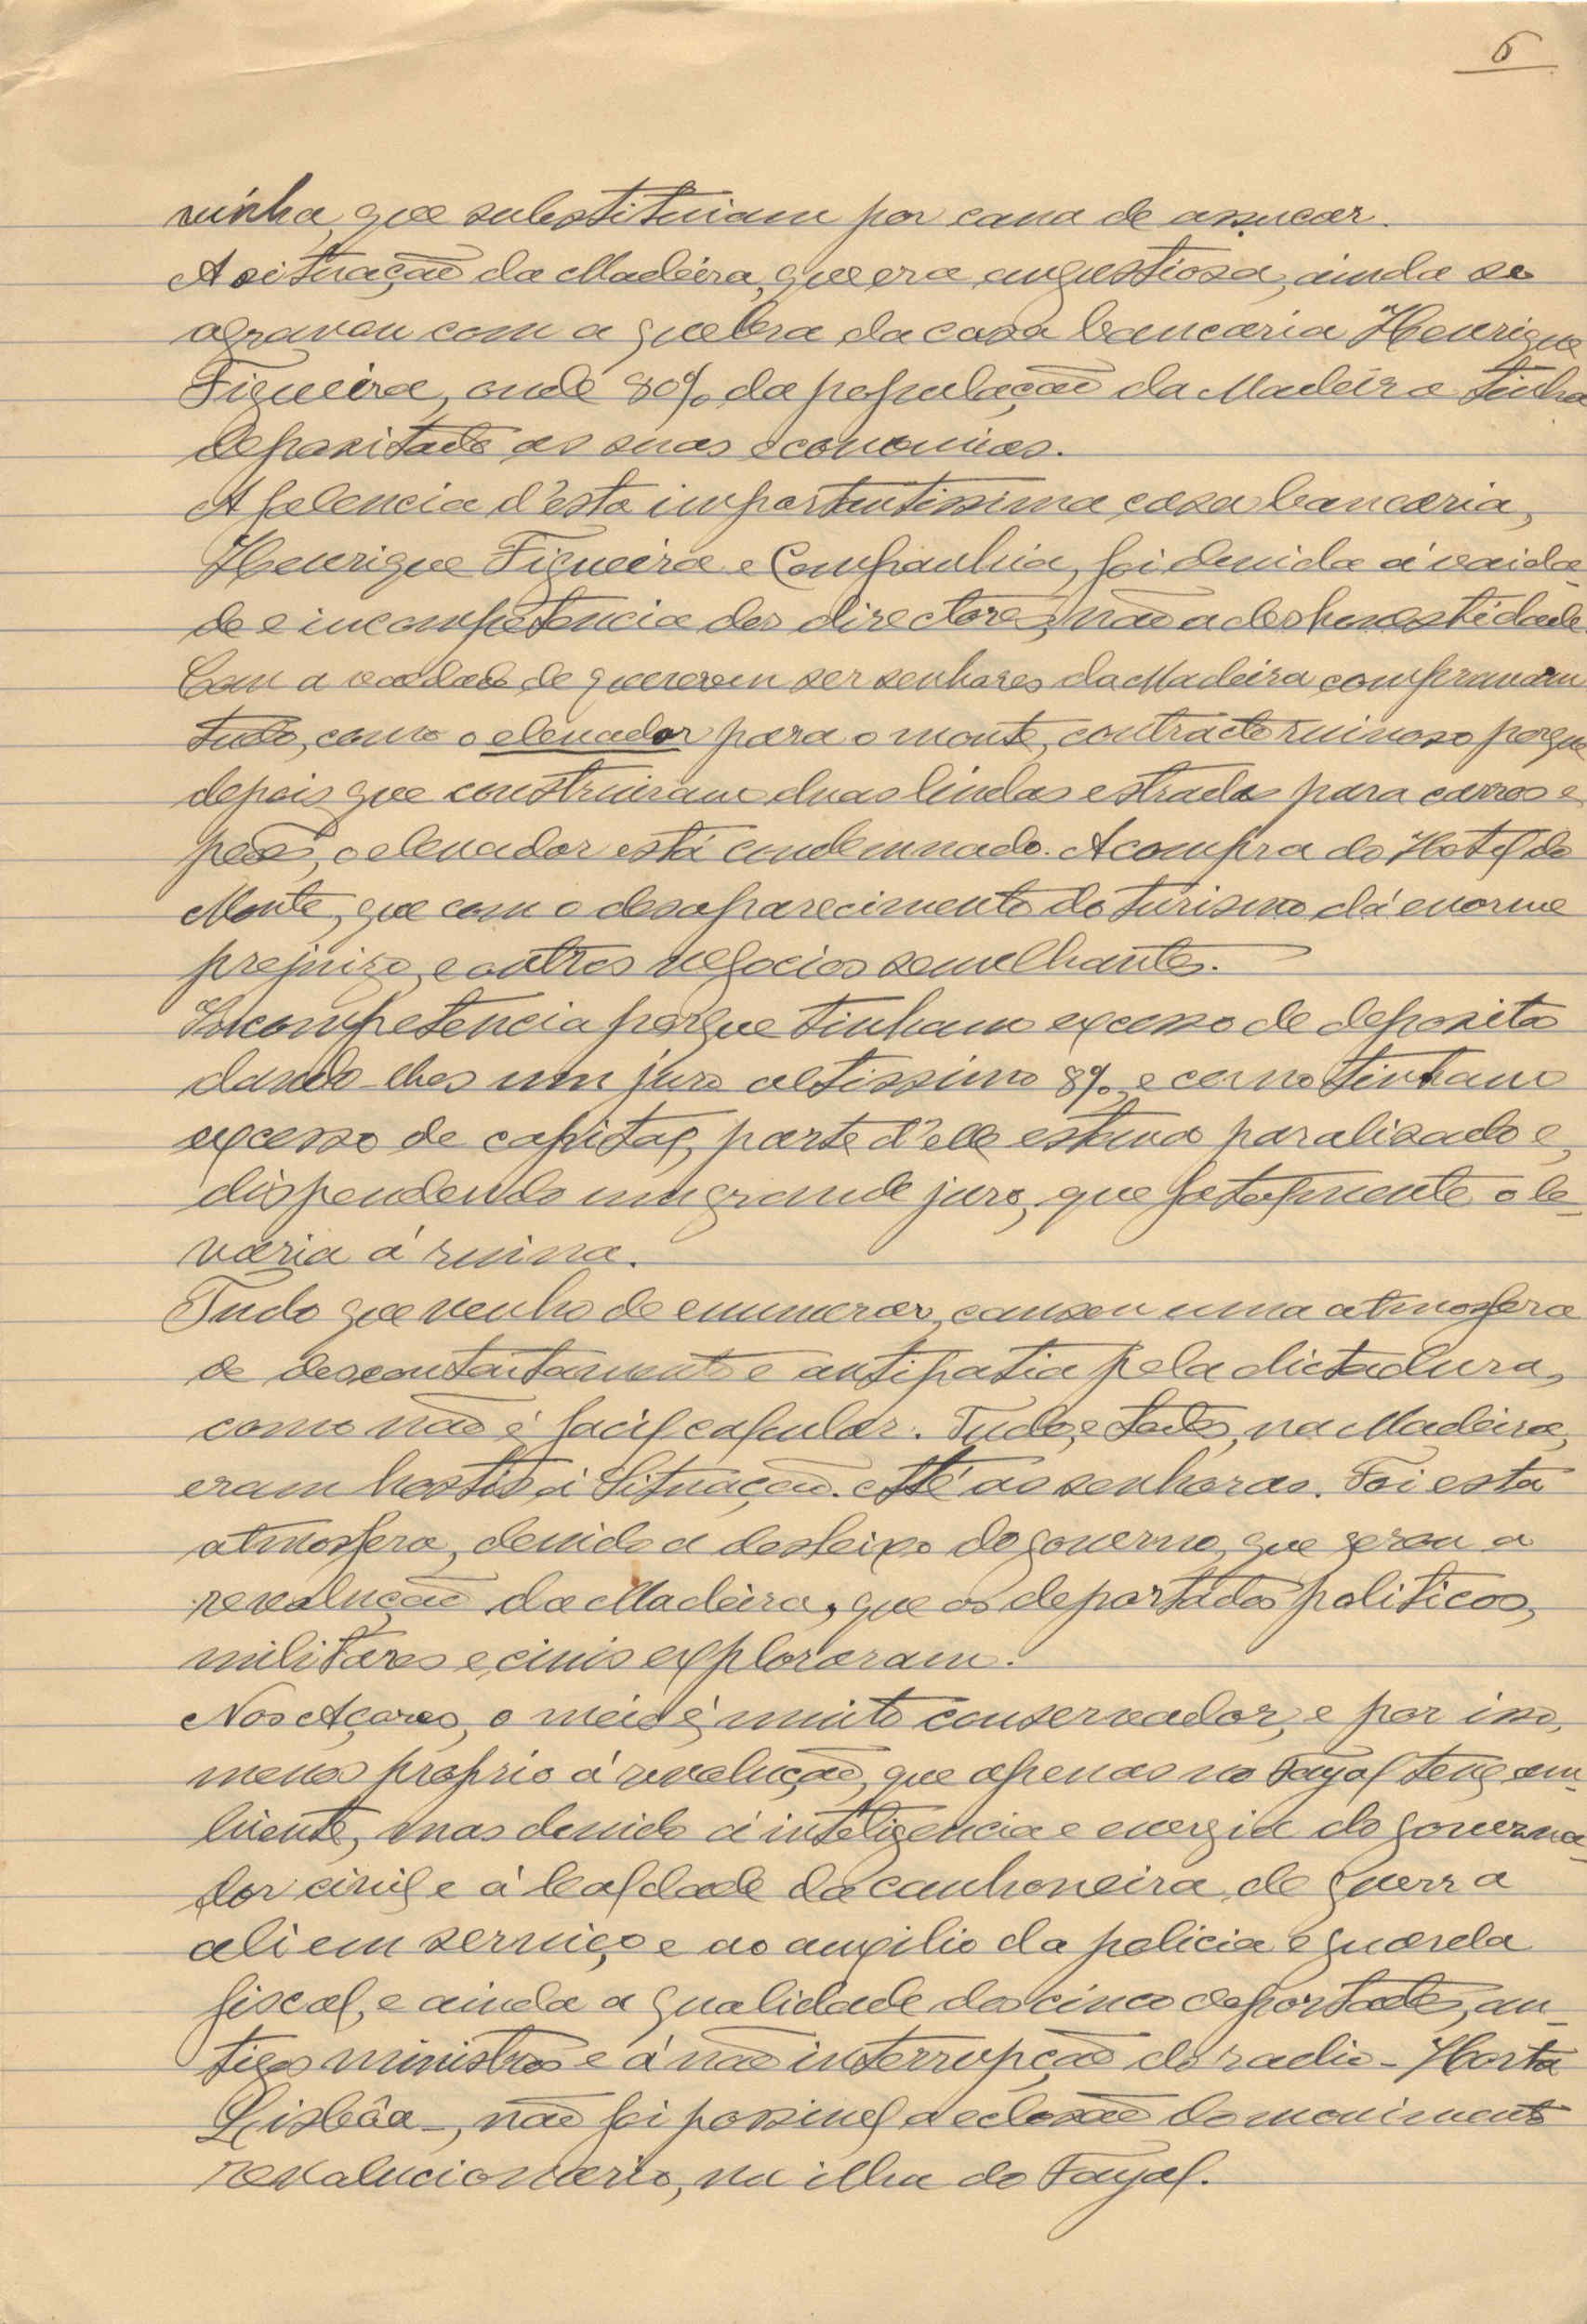 6
vinha, que substituiam por cana de assucar.
A situação da Madeira, que era angustiosa, ainda se
agravou com a quebra da casa bancaria Henrique
Figueira, onde 80% da população da Madeira tinha
depositado as suas economias.
A falencia d'esta importantissima casa bancaria,
Henrique Figueira e Companhia, foi devida á vaida-
de e incompetencia dos directores, não a deshonestidade
Com a vaidade de quererem ser senhores da Madeira compraram
tudo, como o elevador para o monte, contracto ruinoso porque
depois que construiram duas lindas estradas para carros e
peões, o elevador está condemnado. A compra do Hotel do
Monte, que com o desaparecimento do turismo dá enorme
prejuizo, e outros negocios semelhantes.
Incompetencia porque tinham excesso de deposito
dando-lhes um juro altissimo 8%, e como tinham
excesso de capital, parte d'elle estava paralisado e,
dispendendo um grande juro, que fatalmente o le-
varia á ruina.
Tudo que venho de enumerar, causou uma atmosfera
de descontentamento e antipatia pela dictadura,
como não é facil calcular. Tudo, e todos, na Madeira,
eram hostis á Situação. Até as senhoras. Foi esta
atmosfera, devido a desleixo do governo, que gerou a
revolução da Madeira, que os deportados politicos,
militares e civis exploraram.
Nos Açores, o meio é muito conservador, e por isso,
menos proprio á revolução, que apenas no Fayal teve am-
biente, mas devido á inteligencia e energia do governa-
dor civil e á lealdade da canhoneira de guerra
ali em serviço e ao auxilio da policia e guarda
fiscal, e ainda a qualidade dos cinco deportados, an-
tigos ministros e á não interrupção do radio - Horta
Lisbôa -, não foi possivel a eclosão do movimento
revolucionario, na ilha do Fayal.